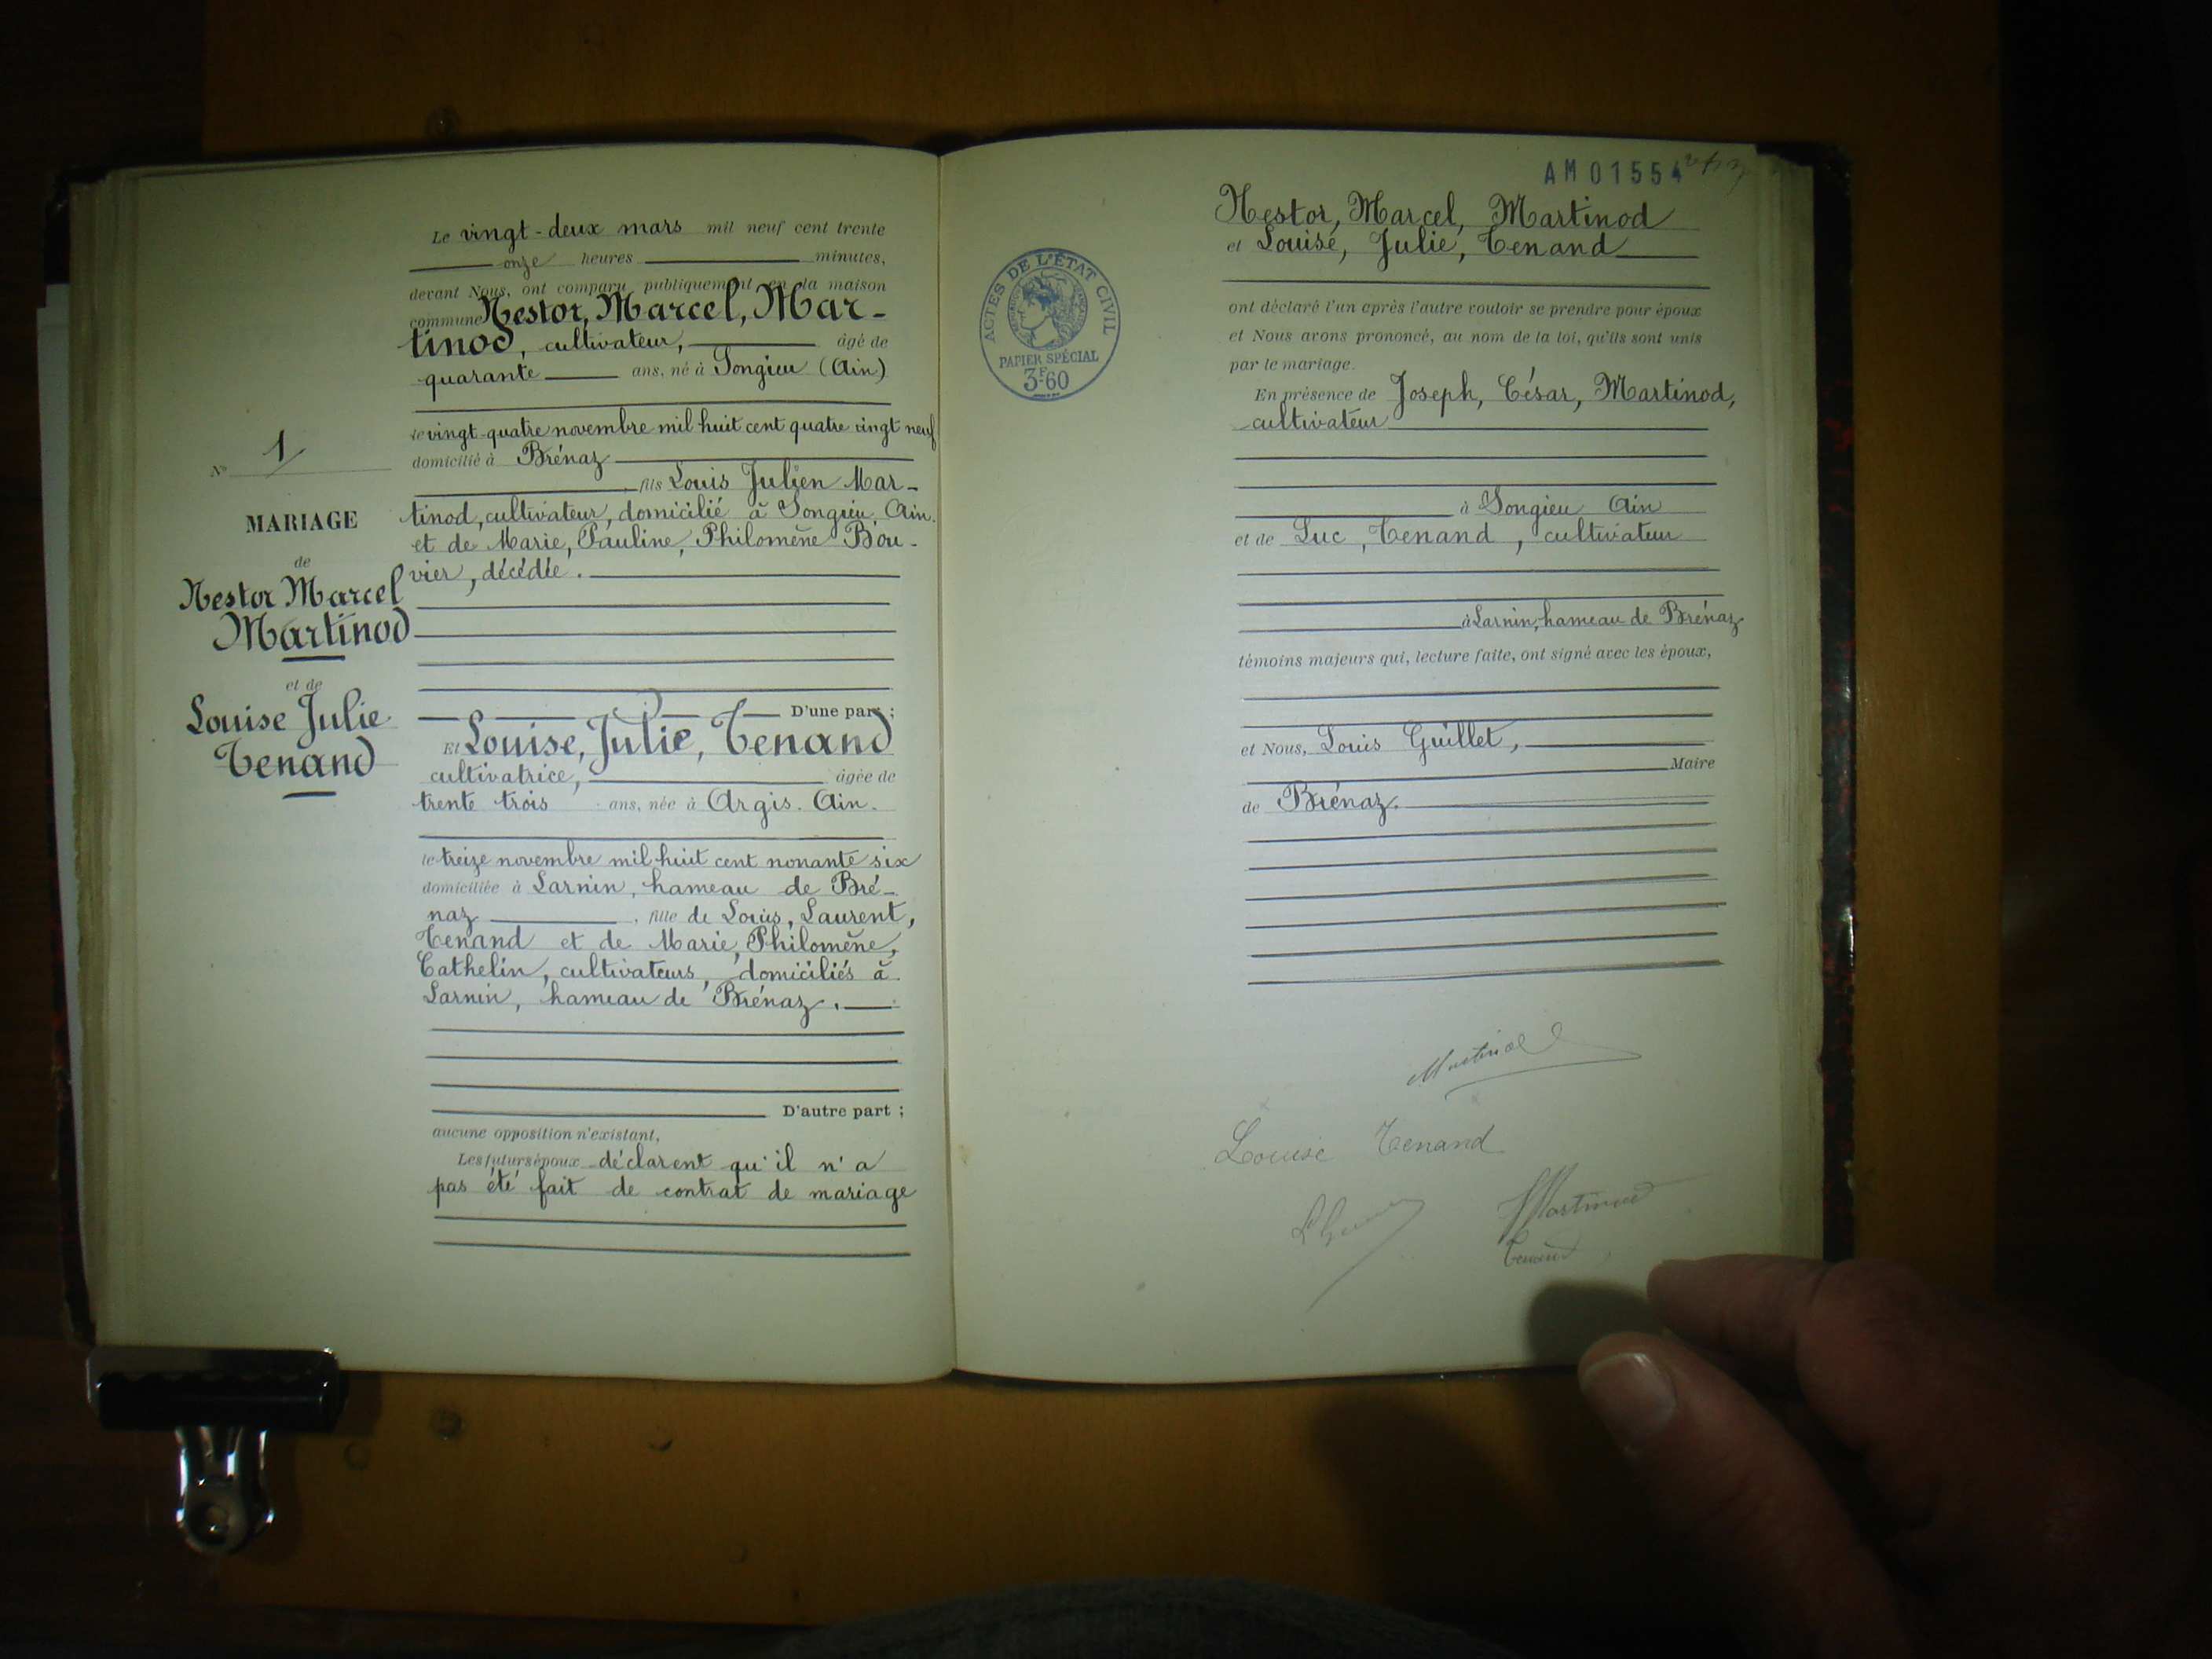 Le vingt-deux mars mil neuf cent trente
onze heures minutes,
devant Nous, ont comparu publiquement en la maison
commune Nestor, Marcel, Mar-
tinod, cultivateur, âgé de
quarante ans, né à Songieu (Ain)
le vingt-quatre novembre mil huit cent quatre vingt neuf
domicilié à Brénaz
fils Louis Julien Mar-
tinod, cultivateur, domicilié à Songieu, Ain.
et de Marie, Pauline, Philomène Bou-
vier, décédée.
D'une part ;
Et Louise, Julie, Tenand
cultivatrice, âgée de
trente trois ans, née à Argis. Ain.
le treize novembre mil huit cent nonante six
domiciliée à Larnin, hameau de Bré-
naz, fille de Louis, Laurent,
Tenand et de Marie, Philomène,
Cathelin, cultivateurs, domiciliés à
Larnin, hameau de Brénaz.
D'autre part ;
aucune opposition n'existant,
Les futurs époux déclarent qu'il n'a
pas été fait de contrat de mariage
N° 1
MARIAGE
de
Nestor Marcel
Martinod
et de
Louise Julie
Tenand
AM 01554
Nestor, Marcel, Martinod
et Louise, Julie, Tenand
ACTES DE L'ÉTAT CIVIL
PAPIER SPÉCIAL
3F.60
ont déclaré l'un après l'autre vouloir se prendre pour époux
et Nous avons prononcé, au nom de la loi, qu'ils sont unis
par le mariage.
En présence de Joseph, César, Martinod,
cultivateur
à Songieu Ain
et de Luc, Tenand, cultivateur
à Larnin, hameau de Brénaz
témoins majeurs qui, lecture faite, ont signé avec les époux,
et Nous, Louis Guillet,
Maire
de Brénaz.
Martinod
Louise Tenand
Martinod
Tenand